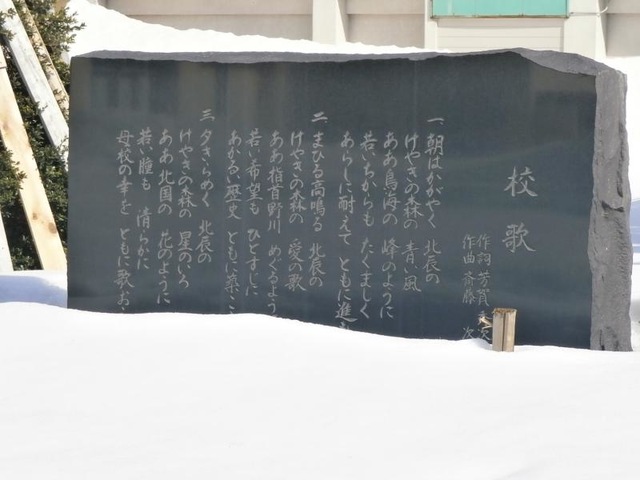 校歌
作詞 芳賀
作曲 斎藤 次
一 朝はかがやく 北辰の
けやきの森の 青い風
ああ鳥海の 峰のように
若いちからも たくましく
あらしに耐えて ともに進
二 まひる高鳴る 北辰の
けやきの森の 愛の歌
ああ指首野川 めぐるよう
若い希望も ひとすじに
あかるい歴史 ともに築こ
三 夕きらめく 北辰の
けやきの森の 星のいろ
ああ北国の 花のように
若い瞳も 清らかに
母校の幸を ともに歌お